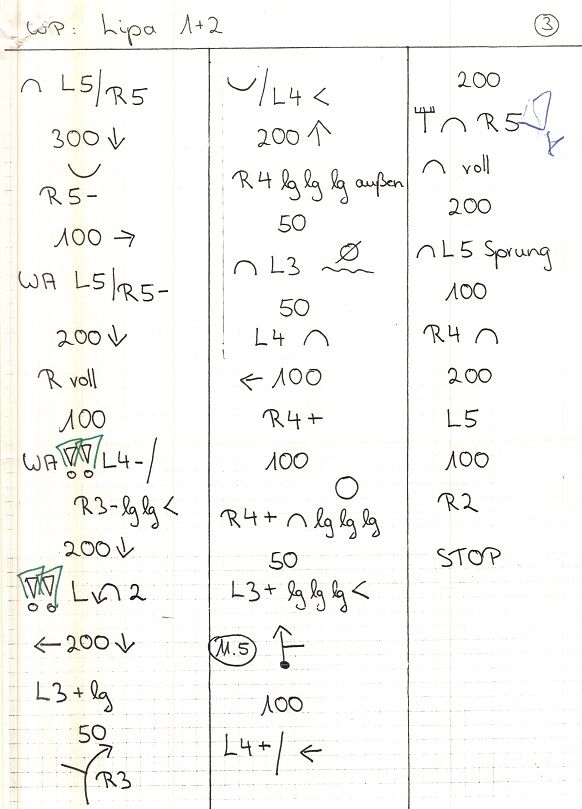 WP: Lipa 1+2
3
∩ L5/R5
300 ↓
R5-
100 →
WA L5/R5-
200 ↓
R voll
100
WA !! L4-/
R3-lglg<
200 ↓
!! L ∩ 2
← 200 ↓
L3+lg
50
R3
/L4<
200 ↑
R4 lg lg lg außen
50
∩ L3
50
L4 ∩
← 100
R4+
100
R4+ ∩ lg lg lg
50
L3+ lg lg lg <
11.5
100
L4+/ ←
200
∩ R5
∩ voll
200
∩ L5 Sprung
100
R4 ∩
200
L5
100
R2
STOP